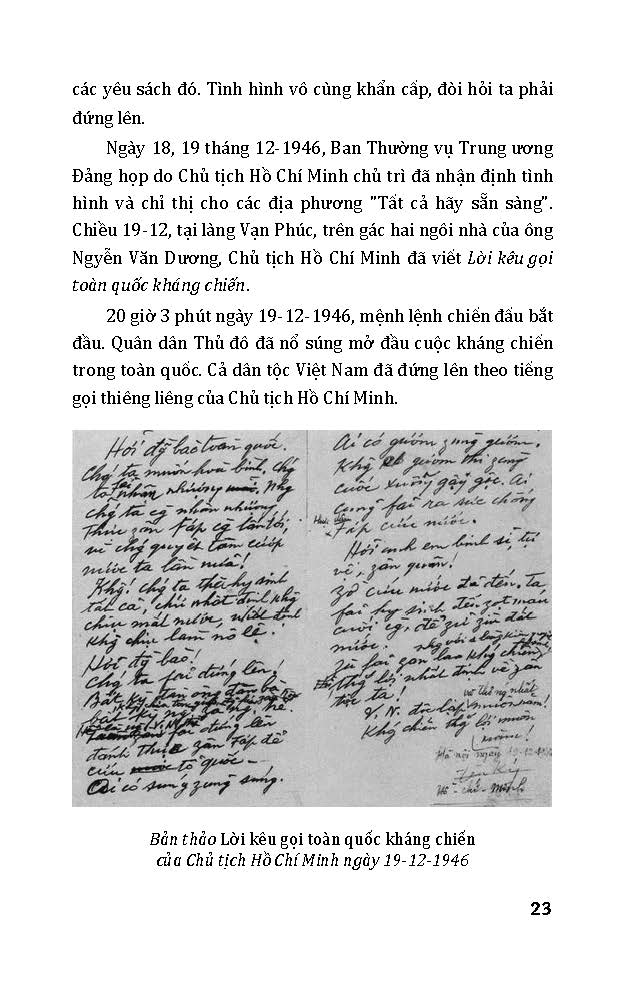 các yêu sách đó. Tình hình vô cùng khẩn cấp, đòi hỏi ta phải
đứng lên.
Ngày 18, 19 tháng 12-1946, Ban Thường vụ Trung ương
Đảng họp do Chủ tịch Hồ Chí Minh chủ trì đã nhận định tình
hình và chỉ thị cho các địa phương "Tất cả hãy sẵn sàng".
Chiều 19-12, tại làng Vạn Phúc, trên gác hai ngôi nhà của ông
Ngyễn Văn Dương, Chủ tịch Hồ Chí Minh đã viết Lời kêu gọi
toàn quốc kháng chiến.
20 giờ 3 phút ngày 19-12-1946, mệnh lệnh chiến đấu bắt
đầu. Quân dân Thủ đô đã nổ súng mở đầu cuộc kháng chiến
trong toàn quốc. Cả dân tộc Việt Nam đã đứng lên theo tiếng
gọi thiêng liêng của Chủ tịch Hồ Chí Minh.
Hỡi đồng bào toàn quốc.
Chg ta muốn hoà bình, chg
ta fải nhân nhượng. Nhg
chg ta cg nhân nhượng,
thực zân Fáp cg lấn tới,
vì chg quyết tâm cướp
nước ta lần nữa!
Khg! chg ta thà hy sinh
tất cả, chứ nhất định khg
chịu mất nước, nhất định
khg chịu làm nô lệ.
Hỡi đg bào!
Chg ta fải đứng lên!
Bất kỳ đàn ông đàn bà
bất kỳ ng già ng trẻ
fải đứng lên
đánh thực zân Fáp để
cứu tổ quốc
Ai có súng zùng súng.
Ai có gươm zùng gươm,
Khg có gươm thì zùng
cuốc xuổng gậy gộc. Ai
cũng fải ra sức chống
Fáp cứu nước.
Hỡi anh em binh sĩ, tự
vệ, zân quân!
Zờ cứu nước đã đến. Ta
fải hy sinh đến zọt máu
cuối cg, để zữ zìn đất
nước.
Zù fải zan lao khg chiến,
thg lợi nhất định về zân
tộc ta!
V.N. độc lập và thống nhất muôn năm!
Khg chiến thg lợi muôn
năm!
Hà nội ngày 19-12-1946
Hồ-chí-Minh
Bản thảo Lời kêu gọi toàn quốc kháng chiến
của Chủ tịch Hồ Chí Minh ngày 19-12-1946
23